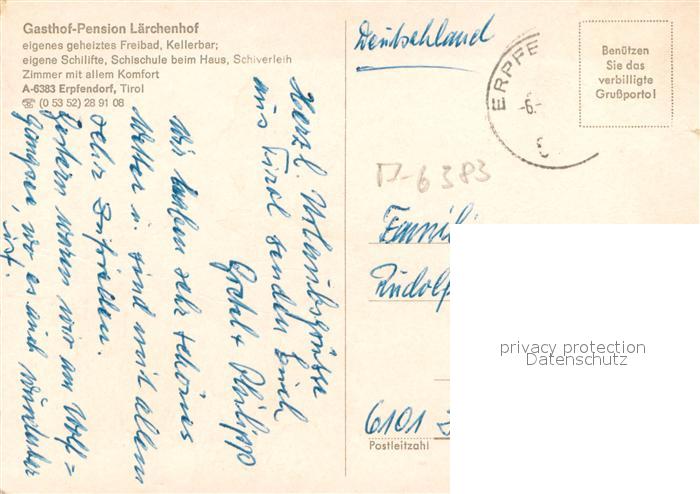 Gasthof-Pension Lärchenhof
eigenes geheiztes Freibad, Kellerbar;
eigene Schilifte, Schischule beim Haus, Schiverleih
Zimmer mit allem Komfort
A-6383 Erpfendorf, Tirol
☎ (0 53 52) 28 91 08
Herzl. Urlaubsgrüsse
aus Tirol senden Euch
Philipp
Wir haben sehr schönes
Wetter u. sind mit allem
sehr zufrieden.
Gestern waren wir am Wolf=
gangsee, wo es auch wunderbar
ist.
Deutschland
ERPFE
-6.-
Benützen
Sie das
verbilligte
Grußporto!
A-6383
Famili
Rudolf
6101
Postleitzahl
privacy protection
Datenschutz